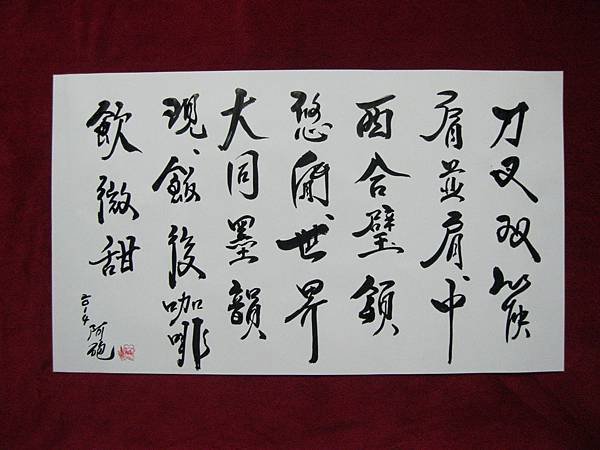 刀叉双筷
肩並肩中
西合璧領
悠閒世界
大同墨韻
現、飯後咖啡
飲微甜
阿砲